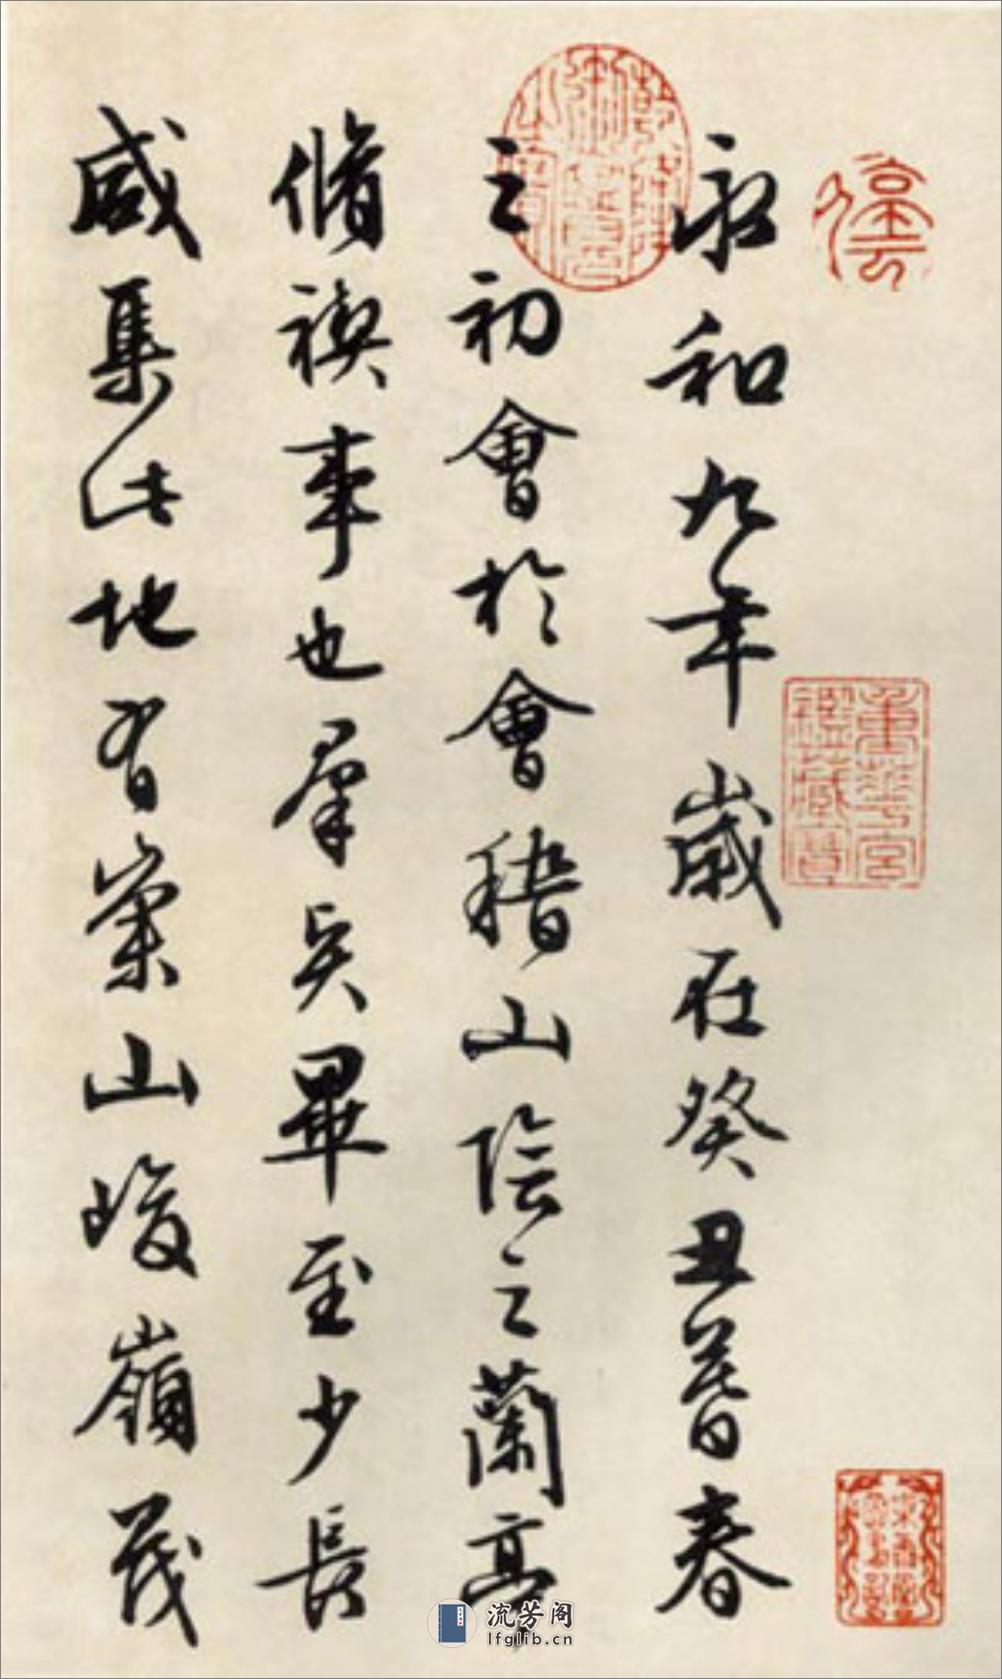 永和九年歲在癸丑暮春
之初會於會稽山陰之蘭亭
脩禊事也羣賢畢至少長
咸集此地有崇山峻嶺茂
重華宮
鑑藏寶
乾隆
御覽
之寶
流芳阁
lfglib.cn